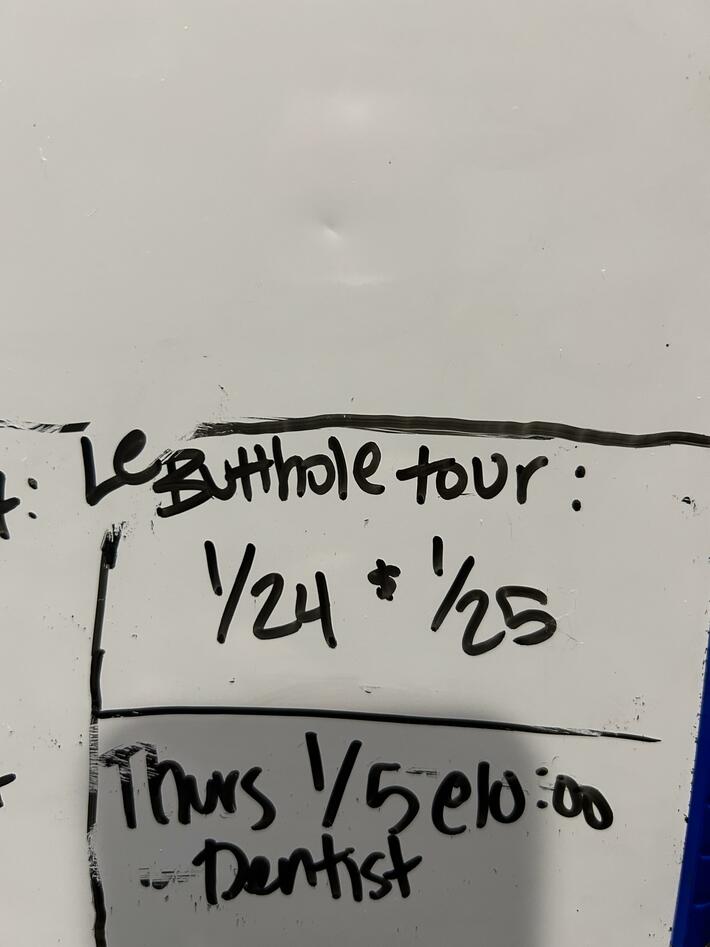 Le Butthole tour:
1/24 & 1/25
Thurs 1/5 @10:00
Dentist